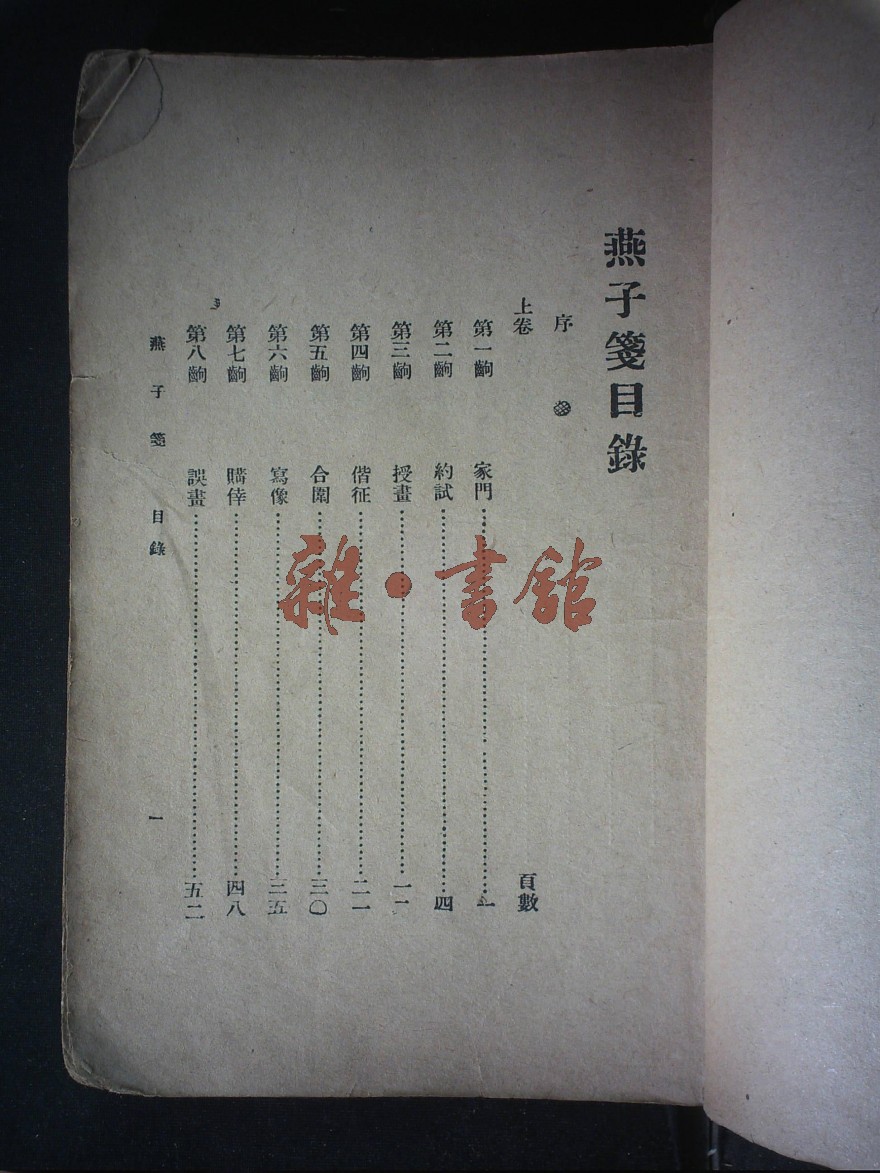 燕子箋目錄
序
上卷 頁數
第一齣 家門…………一
第二齣 約試…………四
第三齣 授畫…………一二
第四齣 偕征…………二一
第五齣 合圍…………三〇
第六齣 寫像…………三五
第七齣 購倖…………四八
第八齣 誤畫…………五二
燕子箋 目錄 一
雜·書館